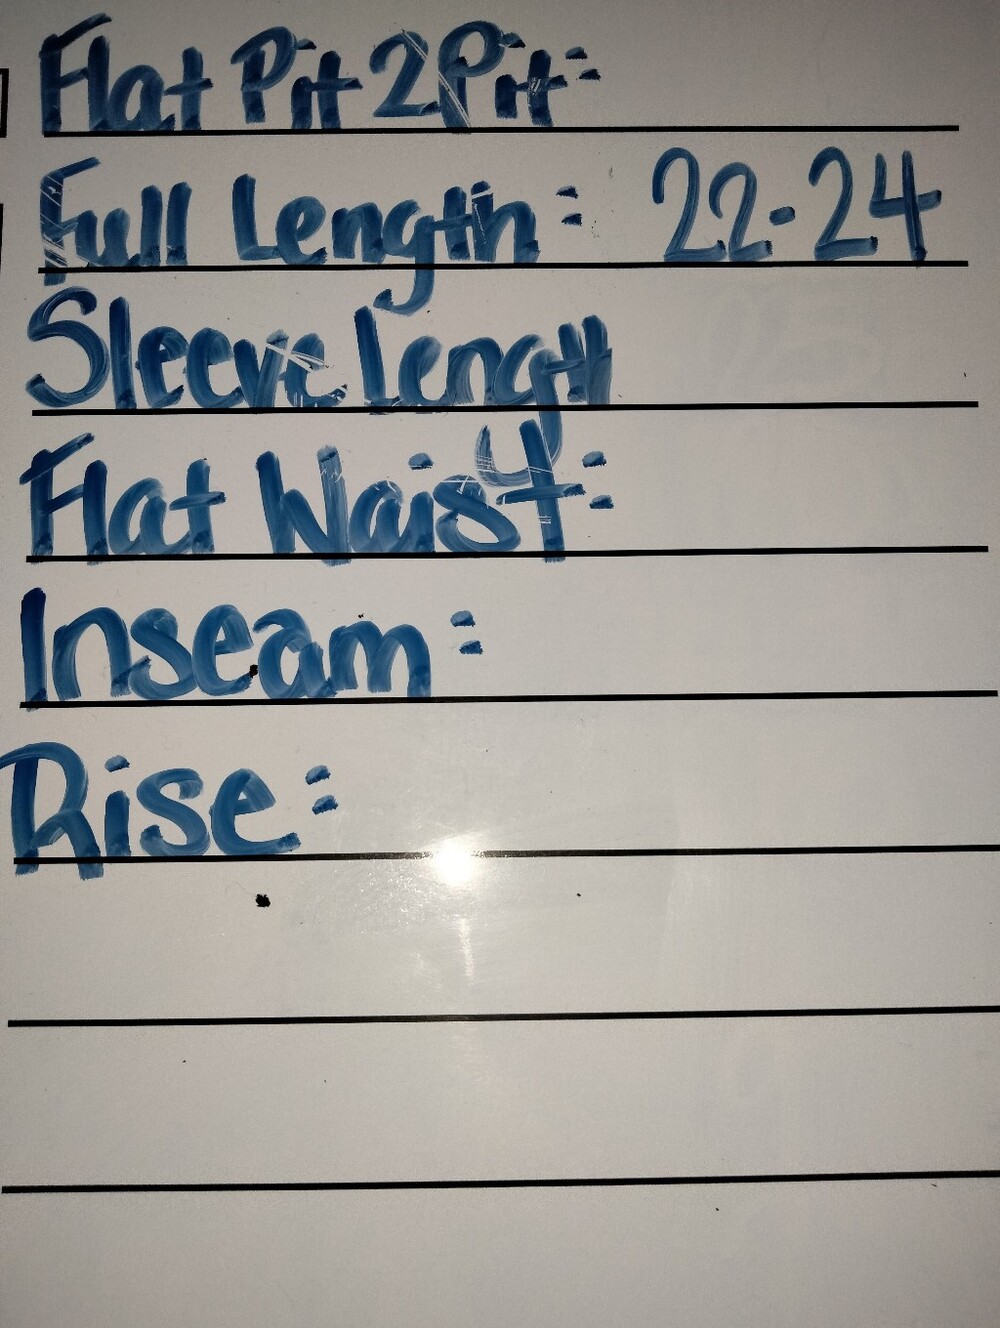 Flat Pit 2 Pit:
Full Length: 22-24
Sleeve Length
Flat Waist:
Inseam:
Rise: